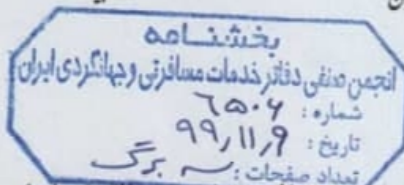 بخشنامه
انجمن صنفی دفاتر خدمات مسافرتی و جهانگردی ایران
شماره : ۶۵۰۶
تاریخ : ۹۹/۱۱/۹
تعداد صفحات : سه برگ